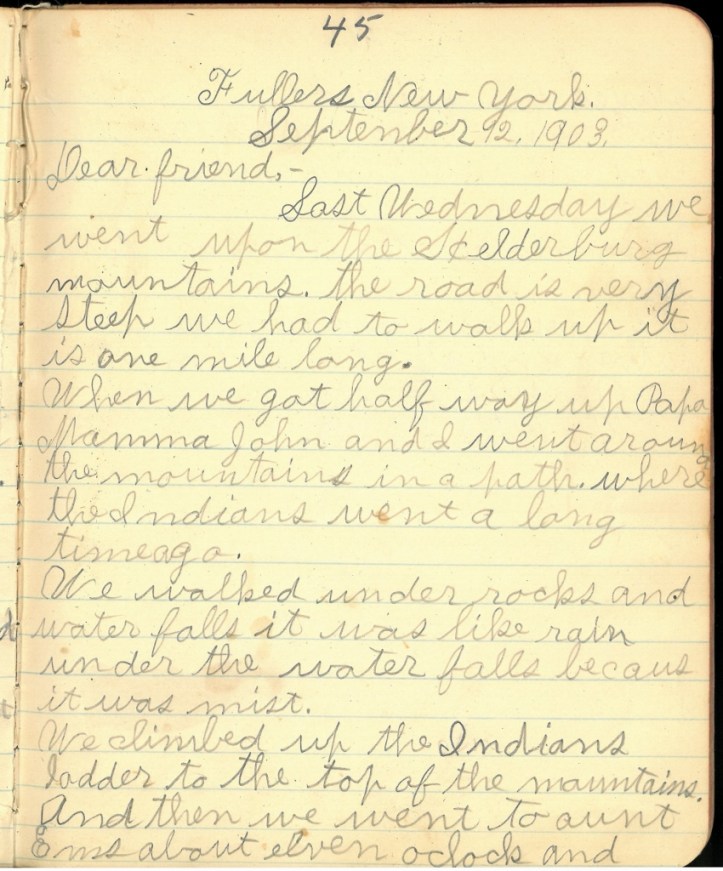 45
Fullers New York.
September 12, 1903.
Dear friend,-
Last Wednesday we
went upon the Helderburg
mountains. the road is very
steep we had to walk up it
is one mile long.
When we got half way up Papa
Mamma John and I went around
the mountains in a path. where
the Indians went a long
timeago.
We walked under rocks and
water falls it was like rain
under the water falls becaus
it was mist.
We climbed up the Indians
ladder to the top of the mountains.
And then we went to aunt
Ems about elven oclock and